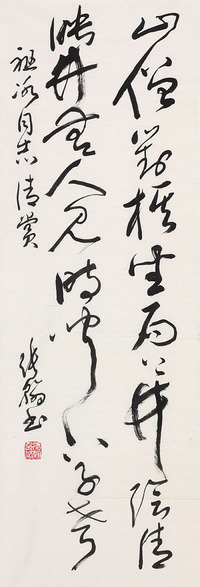 山僧對棋坐局上竹陰清
映竹無人見時聞下子聲
祖同志清賞
書